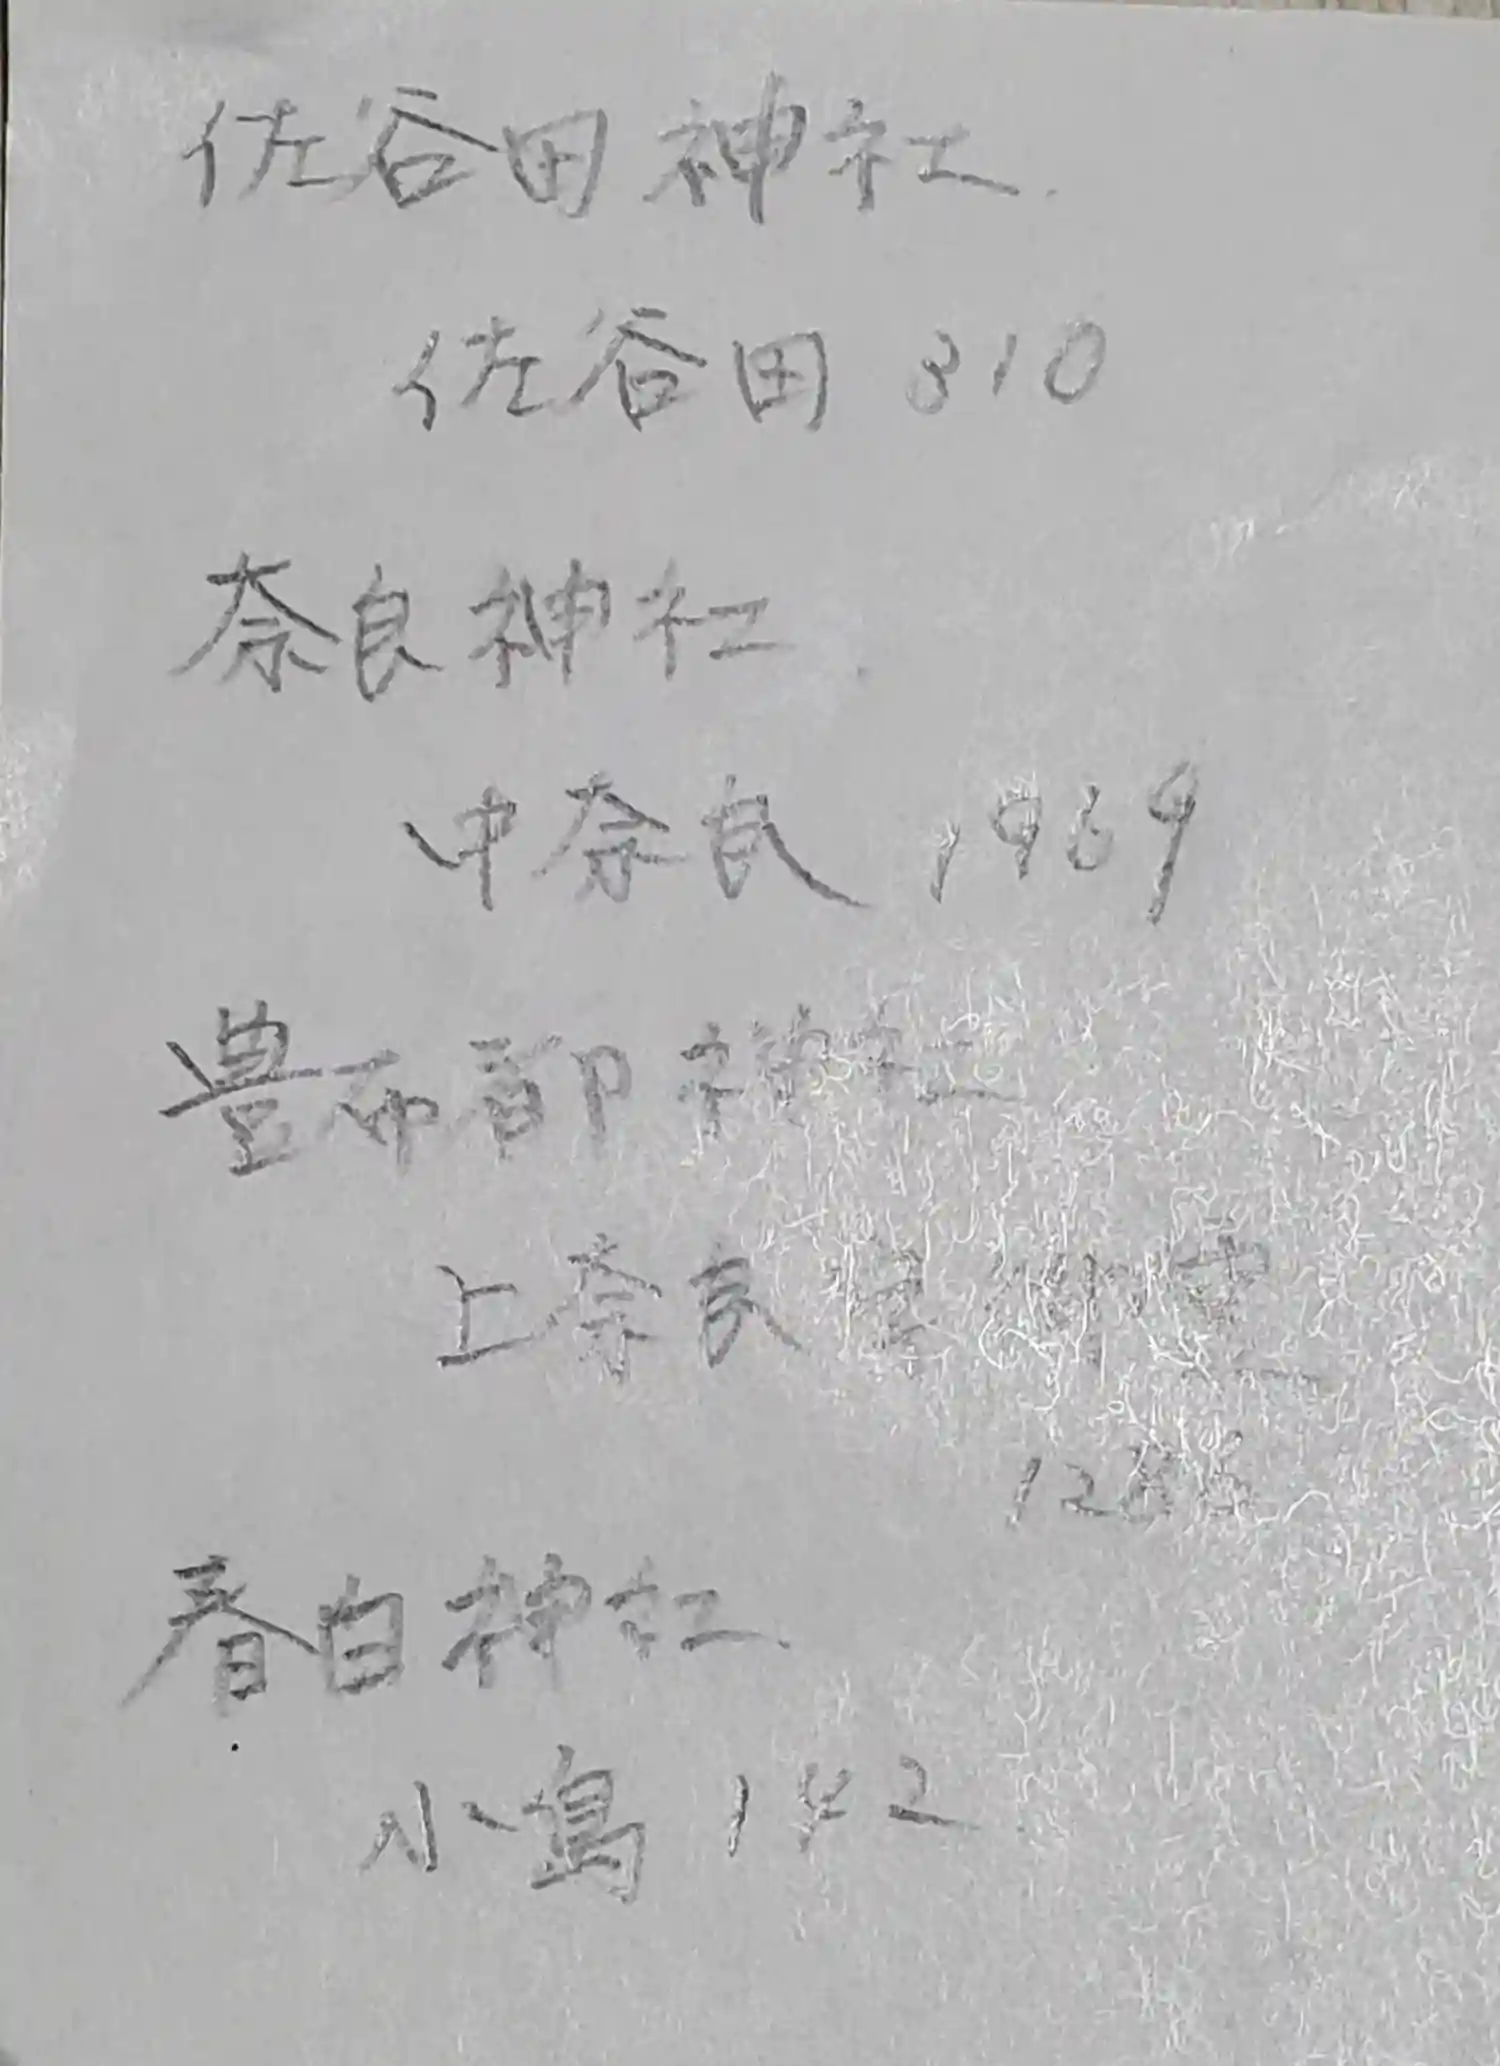 佐谷田神社
佐谷田 310
奈良神社
中奈良 1969
豊布都神社
上奈良
春日神社
小島 142